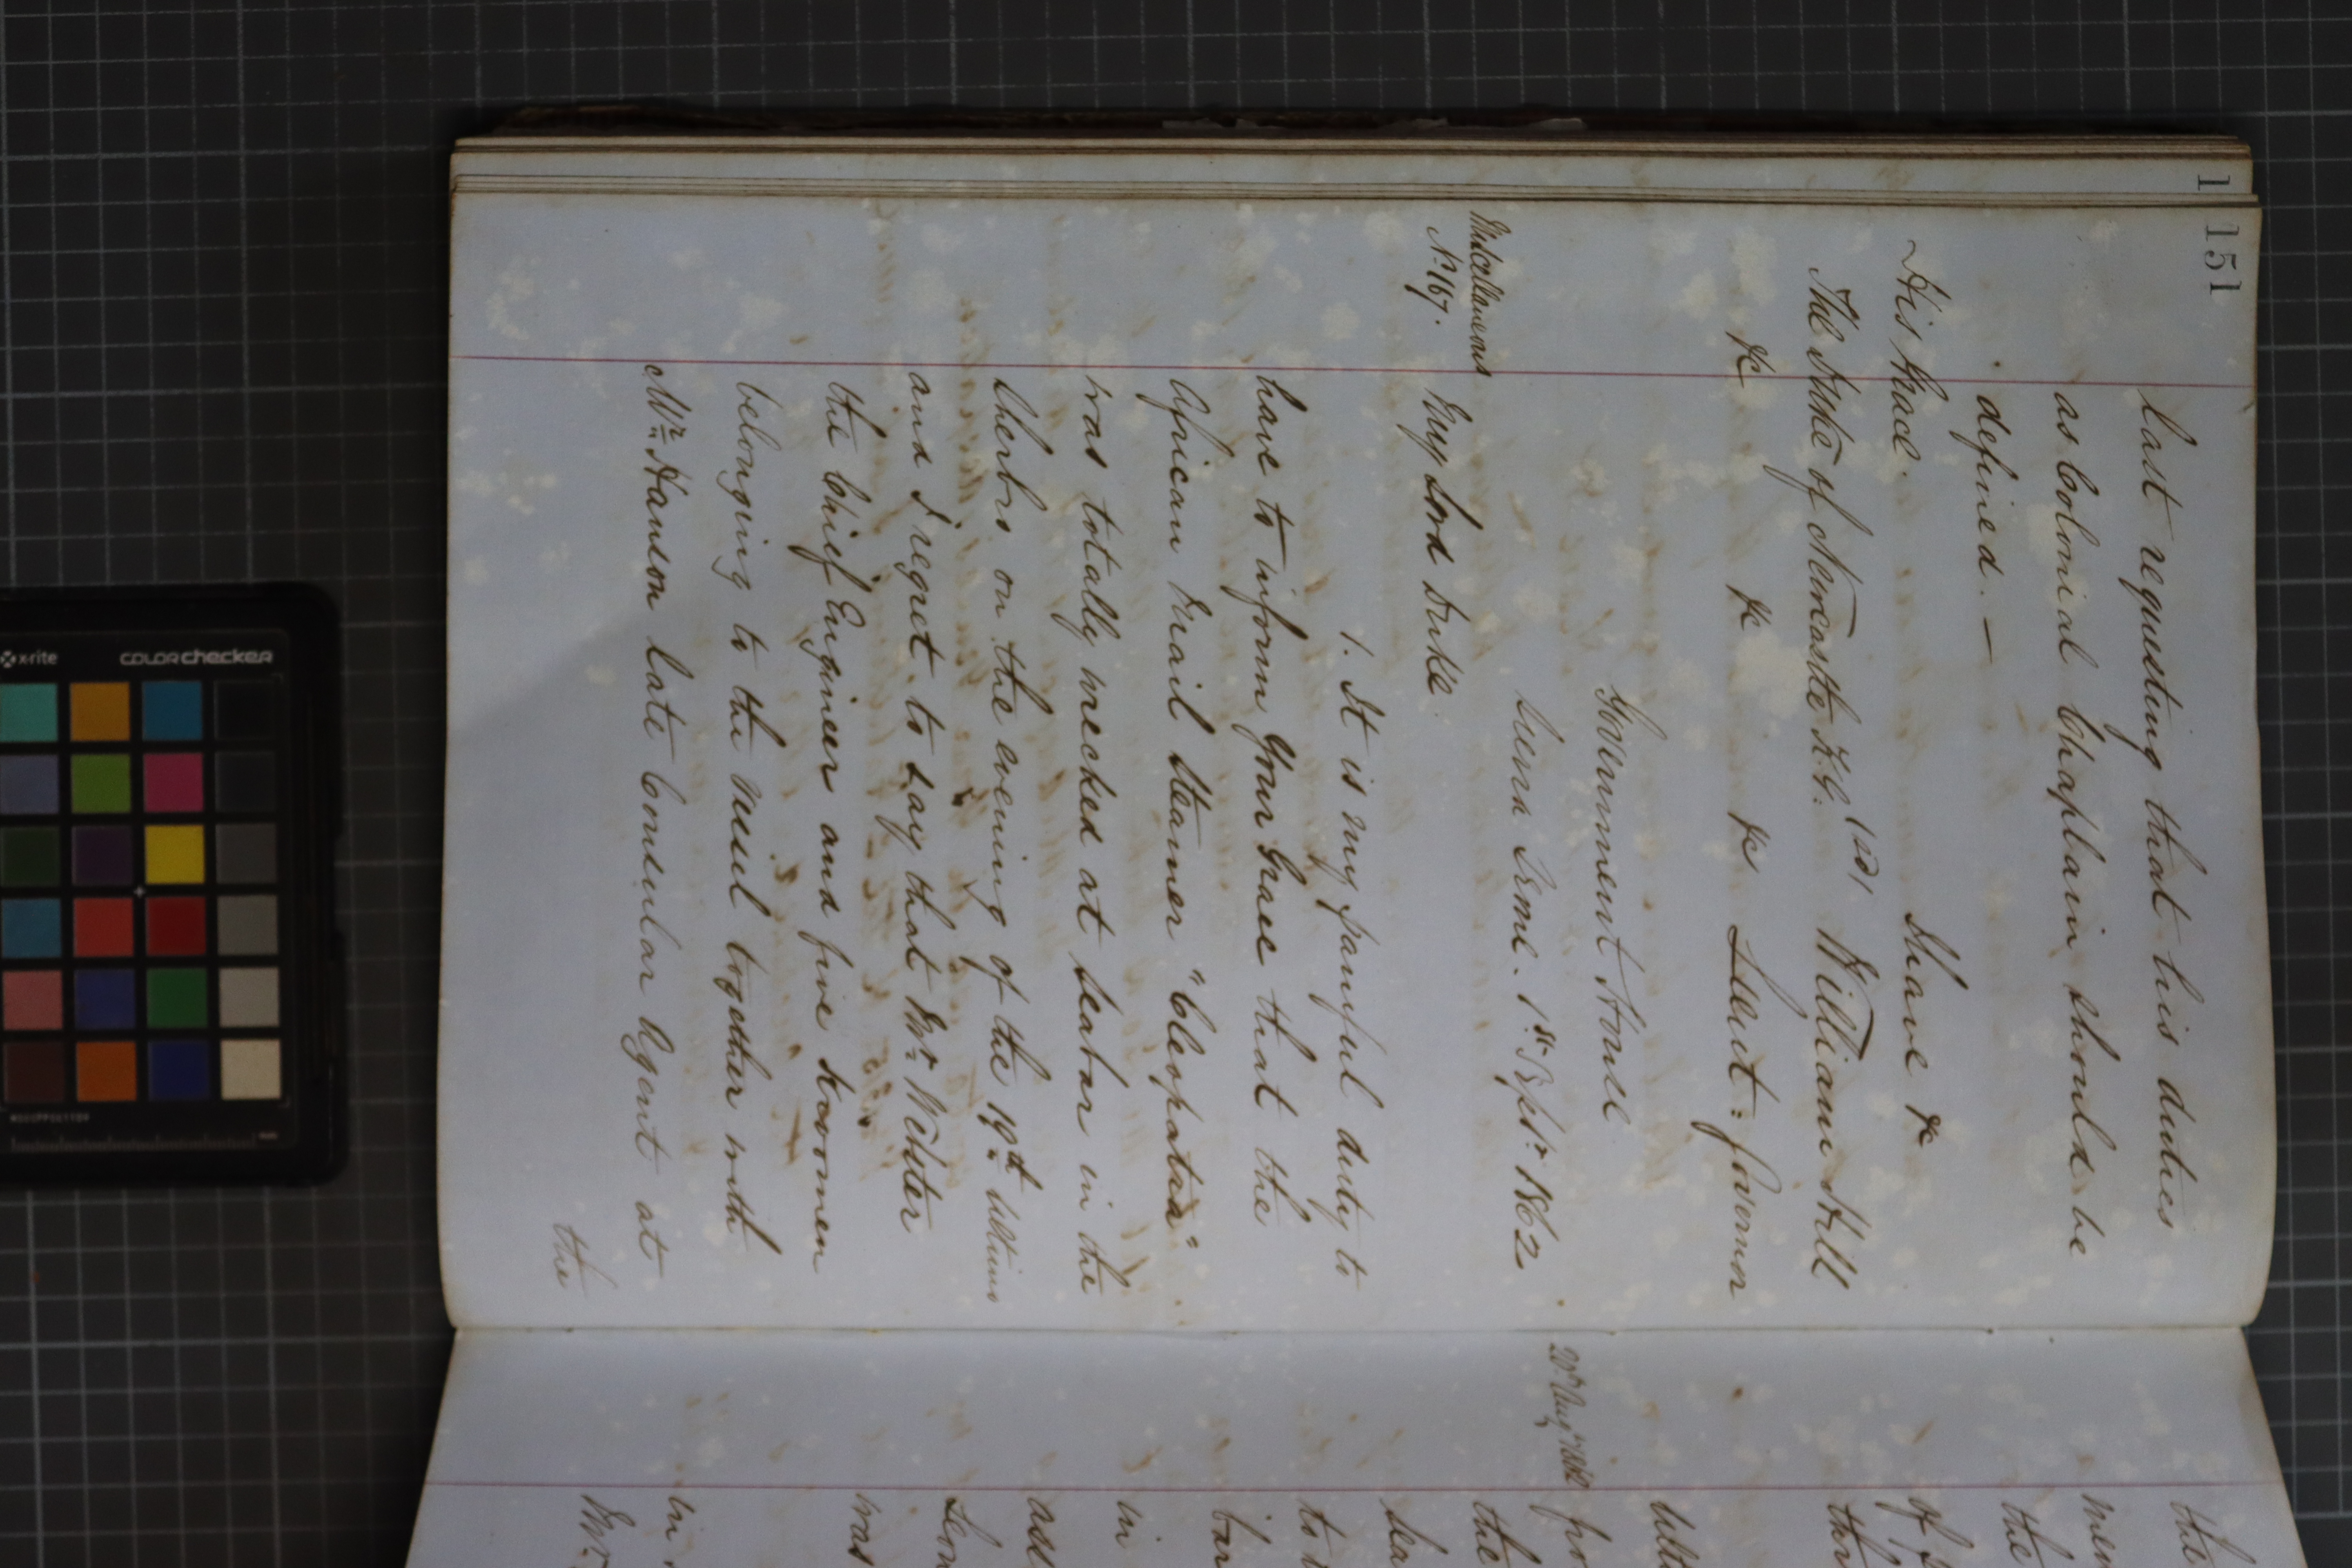 151
last requesting that his duties
as Colonial Chaplain should be
defined. —
His Grace.
I have &c
The Duke of Newcastle K.G. (sd) William Hill
&c &c &c Lieut: Governor
Government House
Sierra Leone. 1st Septr 1862
Miscellaneous
No 167.
My Lord Duke.
1. It is my painful duty to
have to inform Your Grace that the
African Mail Steamer "Cleopatra"
was totally wrecked at Seabar in the
Sherbro on the evening of the 19th Ultimo
and I regret to say that Mr Webster
the Chief Engineer and five Kroomen
belonging to the vessel together with
Mr Hanson late Consular Agent at
the
the
the
of
Ulti
the
to
bar
in
was
Mr
x-rite
colorchecker